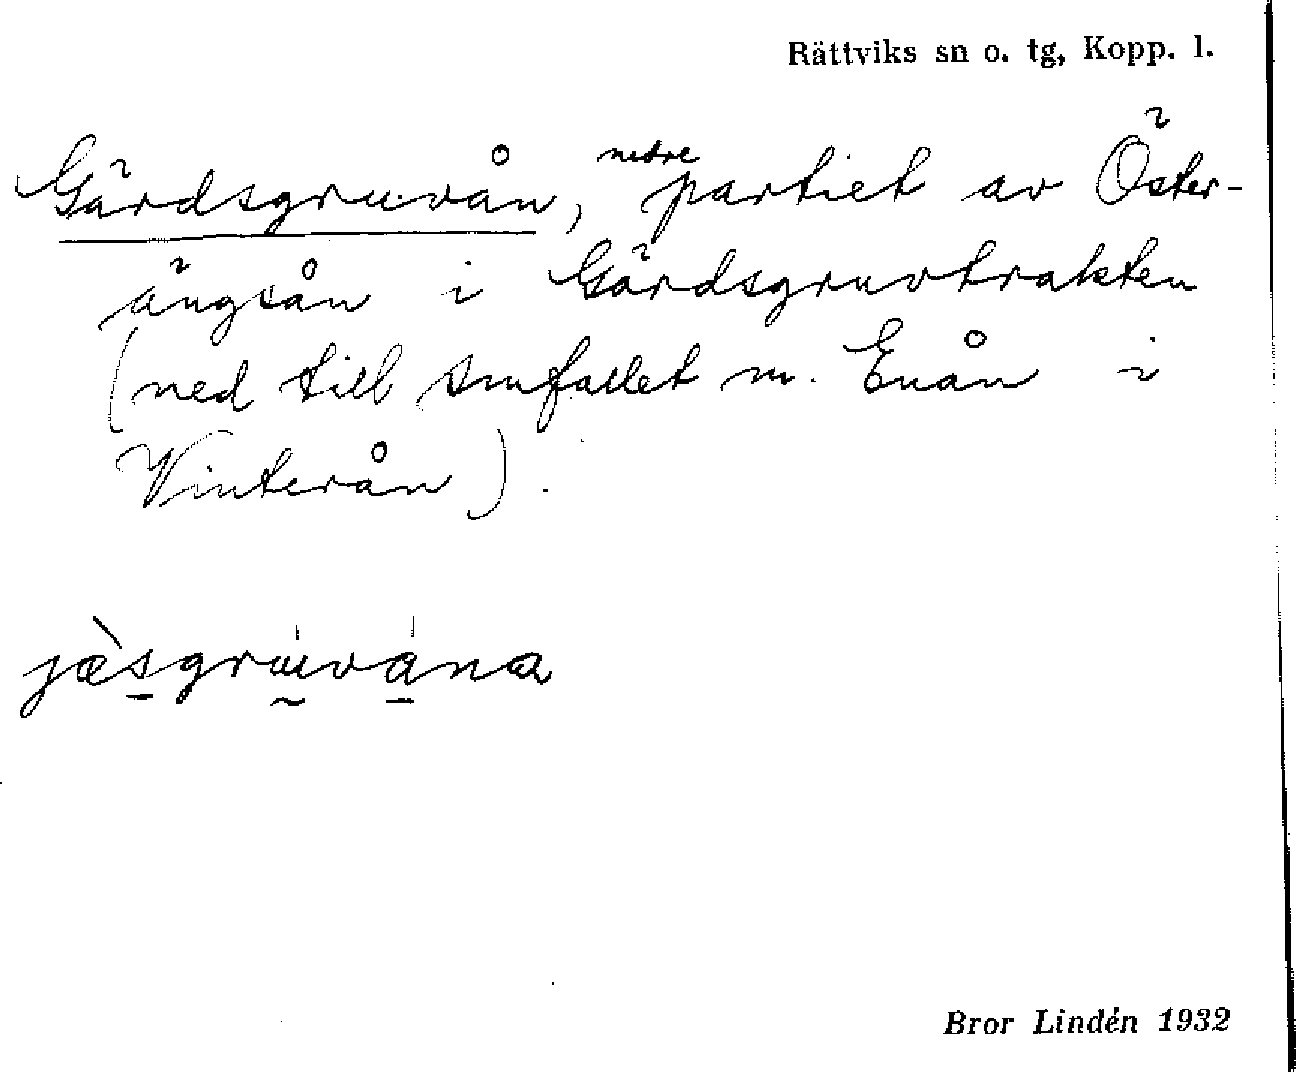 Rättviks sn o. tg, Kopp. l.
Gärdsgruvån, nedre partiet av Öster-
ängsån i Gärdsgruvtrakten
(ned till smfallet m. Enån i
Vinterån).
jæ̀sgru̍va̍na
Bror Lindén 1932